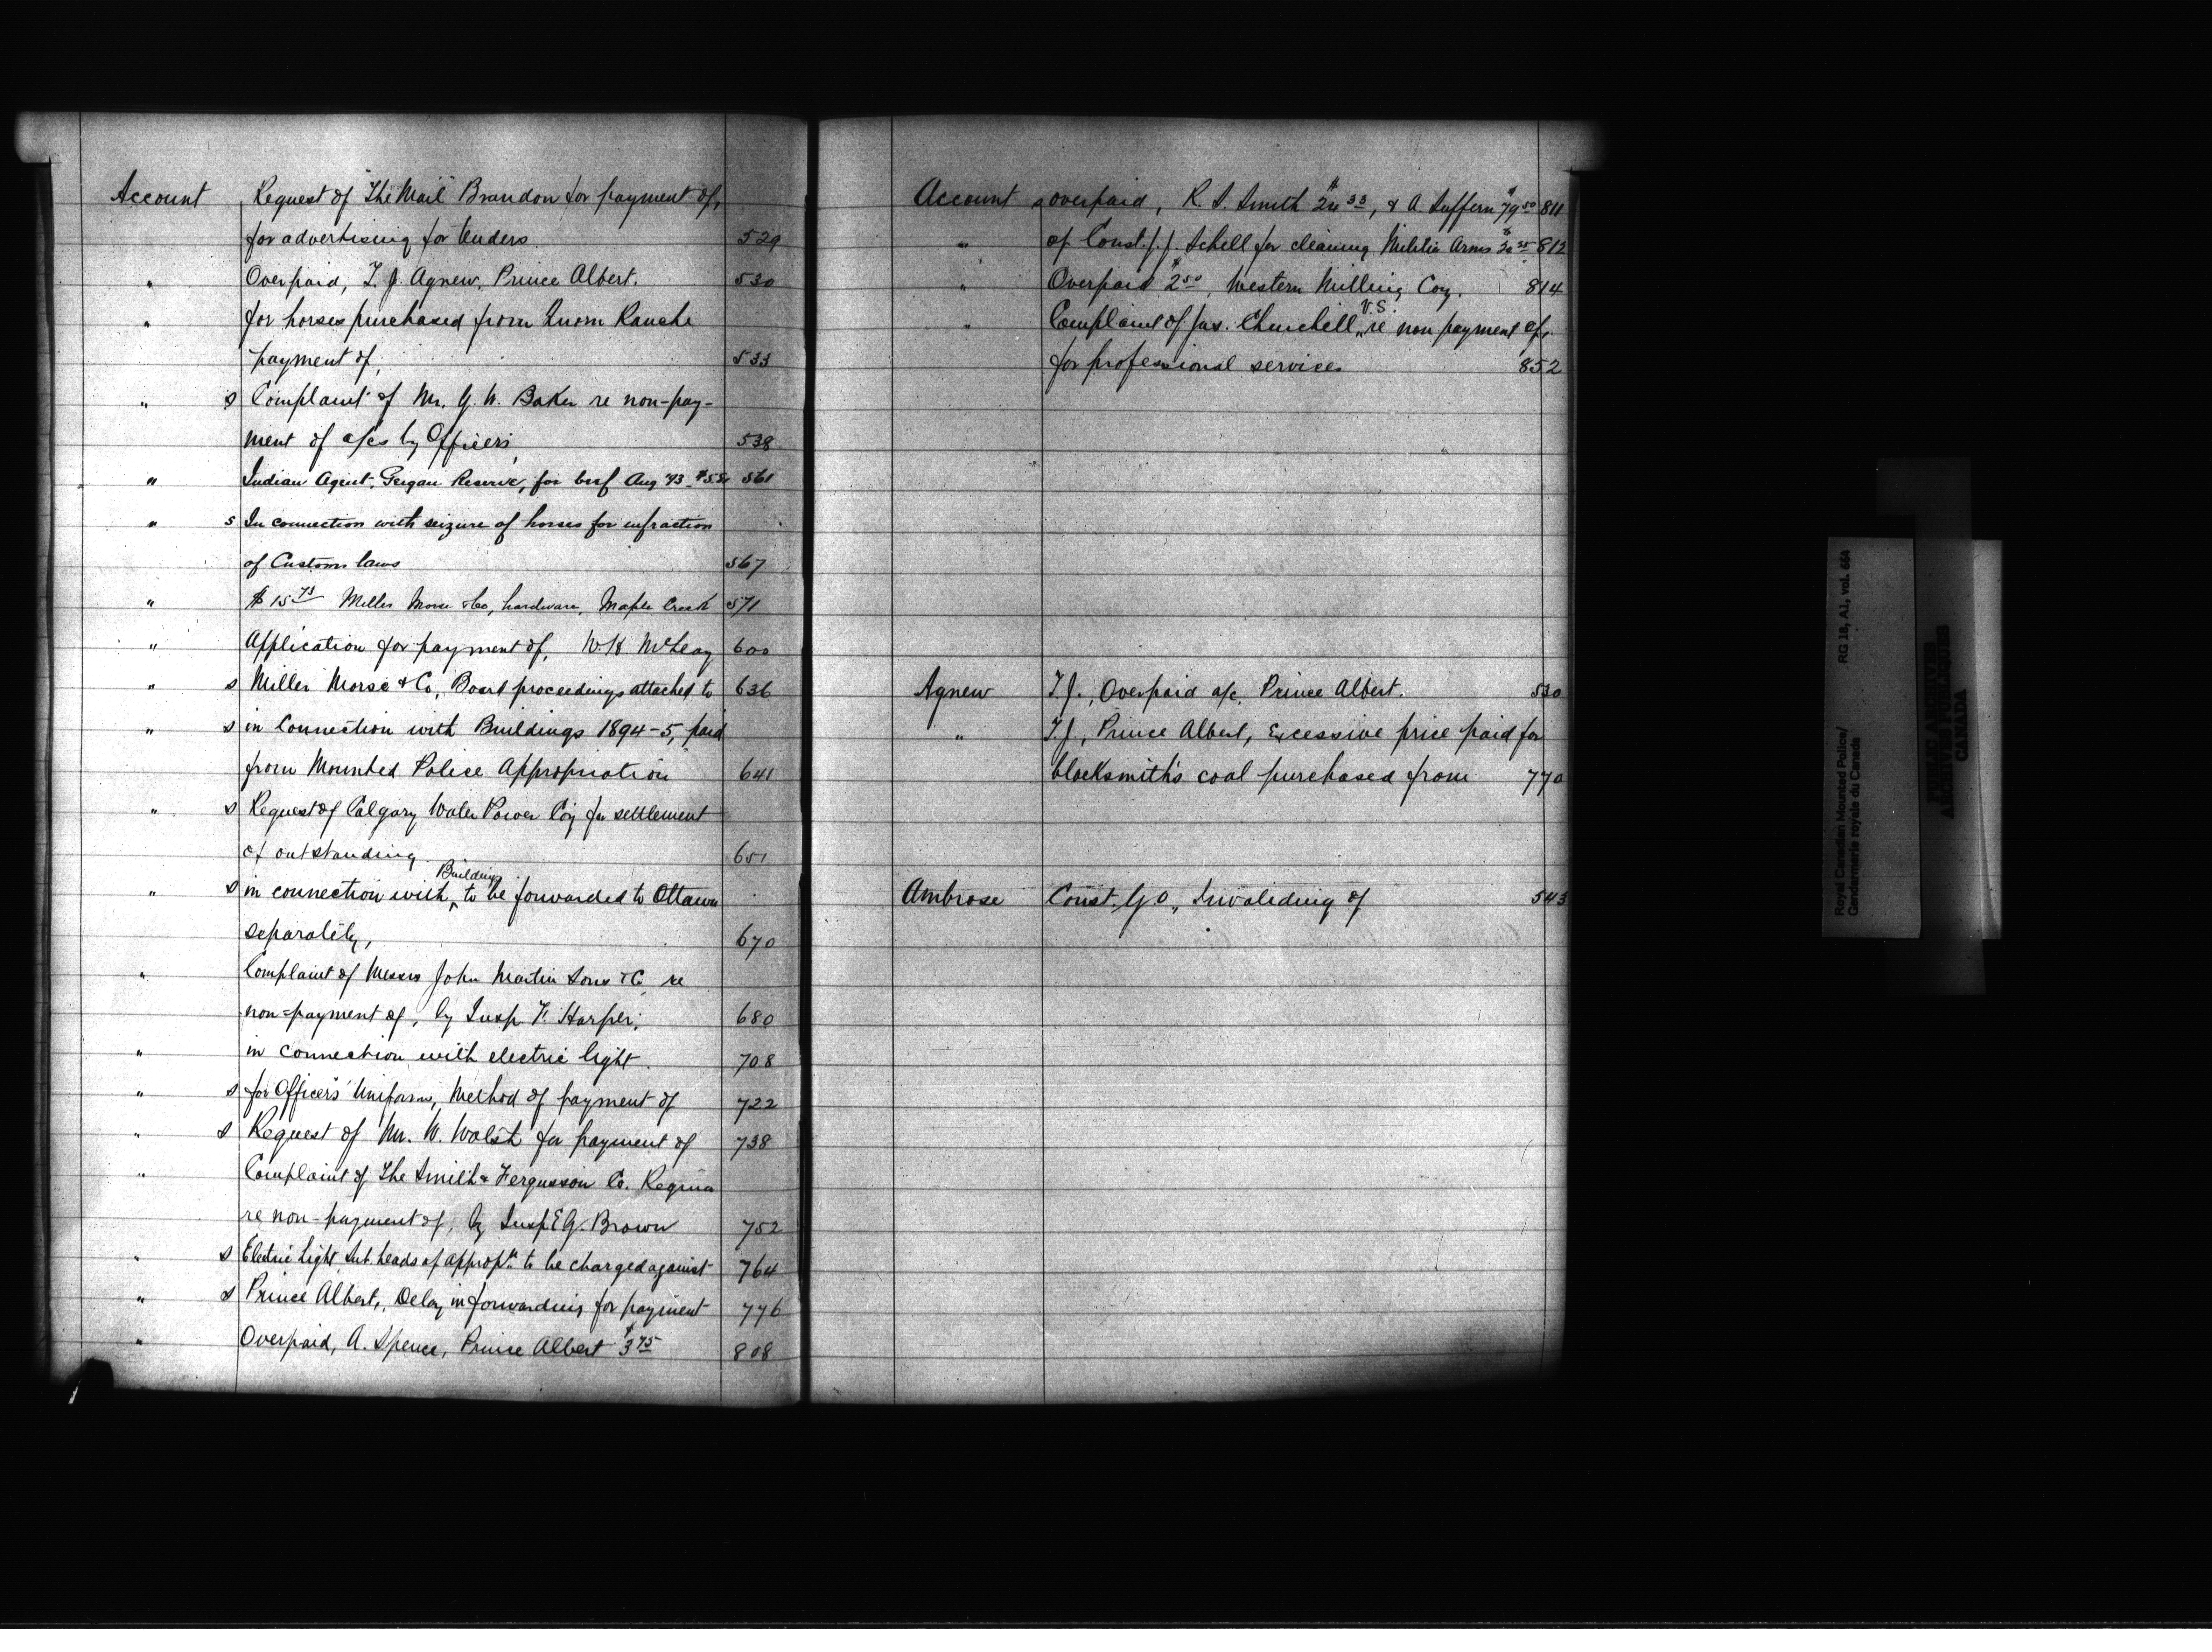 Account Request of "The Mail" Brandon for payment of,
for advertising for tenders. 529
" Overpaid, T. J. Agnew, Prince Albert. 530
" for horses purchased from Quorn Ranche
payment of, 533
" s Complaint of Mr. G. W. Baker re non-pay-
ment of a/cs by Officers, 538
" Indian Agent, Peigan Reserve, for beef Aug '93 561
" s In connection with seizure of horses for infraction
of Customs laws 567
" $15 75 Miller Morse & Co, hardware, Maple Creek 571
" Application for payment of, 600
" s Miller Morse & Co, Board proceedings attached to 636
" s in Connection with Buildings 1894-5, paid
from Mounted Police Appropriation 641
" s Request of Calgary Water Power Coy for settlement
of outstanding 651
Buildings
" s in connection with ^ to be forwarded to Ottawa
separately, 670
" Complaint of Messrs John Martin Sons & Co re
non-payment of, by Insp. F. Harper, 680
" in connection with electric light. 708
" s for Officers' Uniforms, Method of payment of 722
" s Request of Mr. W. Walsh for payment of 738
" Complaint of The Smith & Fergusson Co. Regina
re non-payment of, by Insp E G. Brown 752
" s Electric Light, Sub heads of appropn to be charged against 764
" s Prince Albert, Delay in forwarding for payment 776
" Overpaid, A. Spence, Prince Albert $3 75 808
Account s overpaid, R. S. Smith $24 33, & A. Suffern $79 50 811
" of Const. J. J. Schell for cleaning Militia Arms 812
" Overpaid $2 50, Western Milling Coy. 814
V.S.
" Complaint of Jas. Churchill, re non payment of,
for professional services 852
Agnew T. J., Overpaid a/c, Prince Albert. 530
" T. J., Prince Albert, Excessive price paid for
blacksmith's coal purchased from 770
Ambrose Const. G. O., Invaliding of 543
Royal Canadian Mounted Police/ RG 18, A1, vol. 664
Gendarmerie royale du Canada
PUBLIC ARCHIVES
ARCHIVES PUBLIQUES
CANADA